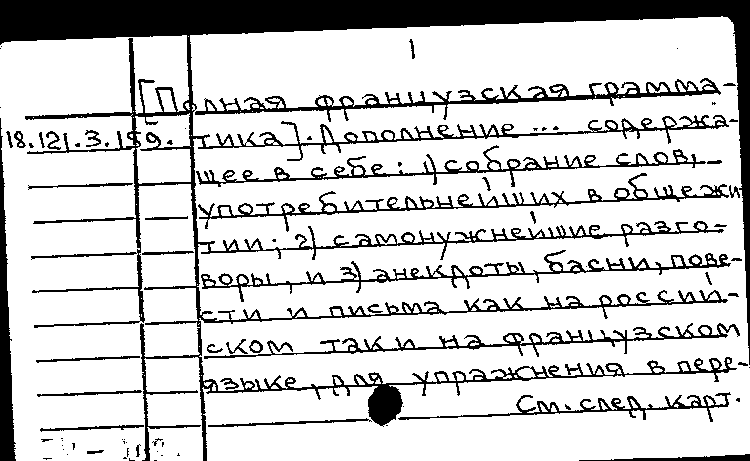 1
[Полная французская грамма-
18.121.3.159. тика]. Дополнение ... содержа-
щее в себе: 1) собрание слов,
употребительнейших в общежи
тии; 2) самонужнейшие разго-
воры, и 3) анекдоты, басни, пове-
сти и письма как на россий-
ском так и на французском
языке, для упражнения в пере-
См. след. карт.